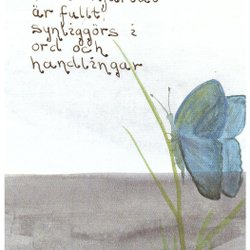 är fullt,
synliggörs i
ord och
handlingar